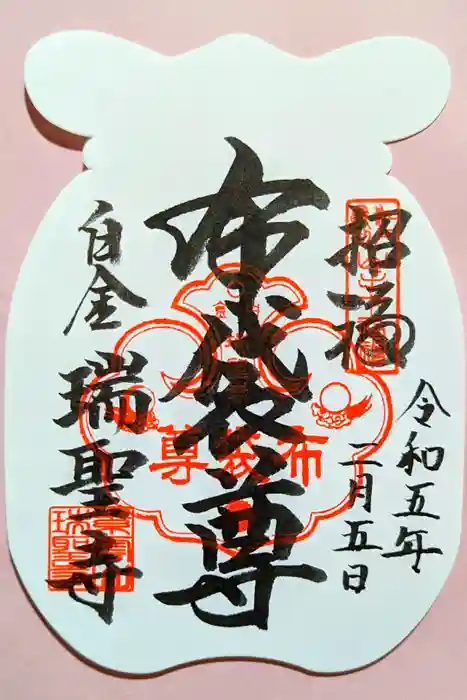 招福
令和五年
二月五日
布袋尊
布袋尊
白金
瑞聖寺